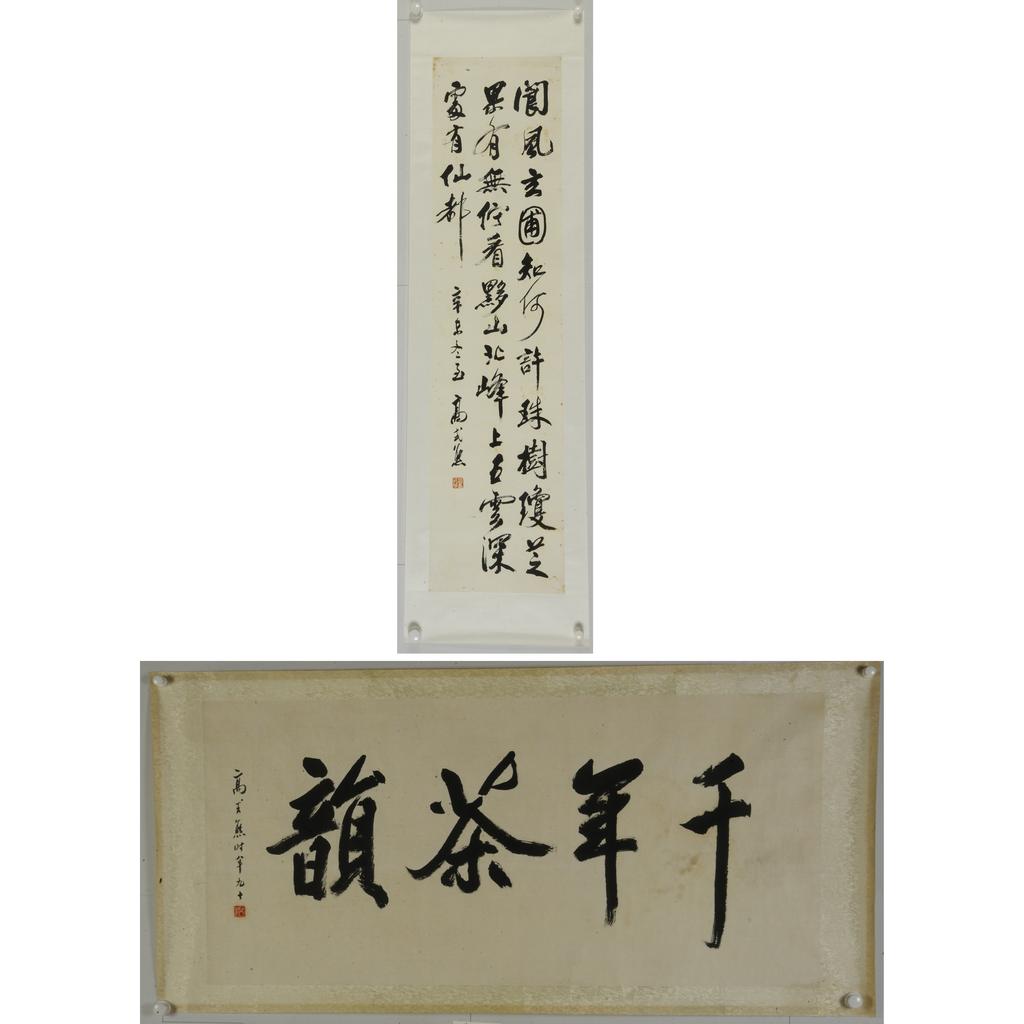 阆風玄圃知何許珠樹瓊芝
果有無俗看黟山北峰上五雲深
處有仙都
辛未冬至 高式熊
千年茶韻
高式熊時年九十